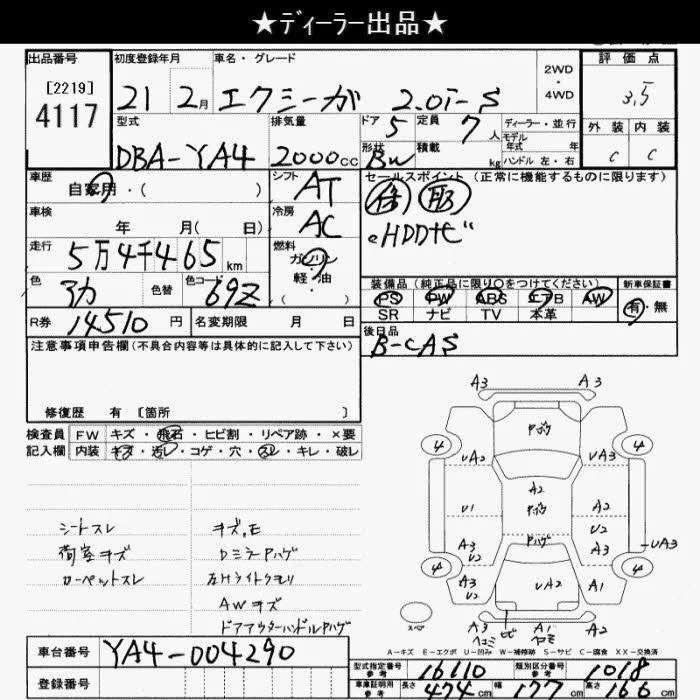 ★ディーラー出品★
出品番号 初度登録年月 車名・グレード 2WD・4WD 評価点
[2219]
4117
21 2月 エクシーガ 2.0i-S 3.5
型式 排気量 ドア 定員 ディーラー・並行 外装 内装
DBA-YA4 2000cc 5 7人 モデル年式 年 C C
形状 積載 kg ハンドル 左・右
BW
車歴 シフト セールスポイント (正常に機能するものに限ります)
自家用・( ) AT
HDDナビ
車検 冷房
年 月( 日) AC
走行 燃料
5万4千465km ガソリン
軽・油
( )
色 色替 色コード 装備品 (純正品に限り○をつけてください) 新車保証書
69Z PS PW ABS エアB AW 有・無
SR ナビ TV 本革
R券 14510円 名変期限 月 日 後日品
B-CAS
注意事項申告欄(不具合内容等は具体的に記入して下さい)
修復歴 有 [箇所 ]
検査員 FW キズ・飛石・ヒビ割・リペア跡・×要
記入欄 内装 キズ・汚レ・コゲ・穴・スレ・キレ・破レ
シートスレ キズ,E
荷室キズ DミラーPハゲ
カーペットスレ 左Hライトクモリ
AWキズ
ドアアウターハンドルPハゲ
A3 A3
Pボウ
4 4
UA2 UA3
A2
U1 Pボウ A2
U2
A3 Pハゲ A3
U2 UA3
4 4
A3 UA2 A1
U2
スペア A3 ヒビ A1 A2
ヘコミ
A-キズ E-エクボ U-凹み W-補修跡 S-サビ C-腐食 XX-交換済
車台番号 YA4-004290
型式指定番号 参考 16110 類別区分番号 参考 1018
登録番号
車庫証明用 参考 長さ 474cm 幅 177cm 高さ 166cm